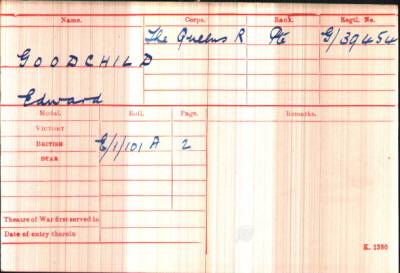 Name. Corps. Rank. Regtl. No.
GOODCHILD The Queens R Pte G/39454
Edward
Medal. Roll. Page. Remarks.
VICTORY
BRITISH E/1/101 A 2
STAR
Theatre of War first served in
Date of entry therein
K. 1380